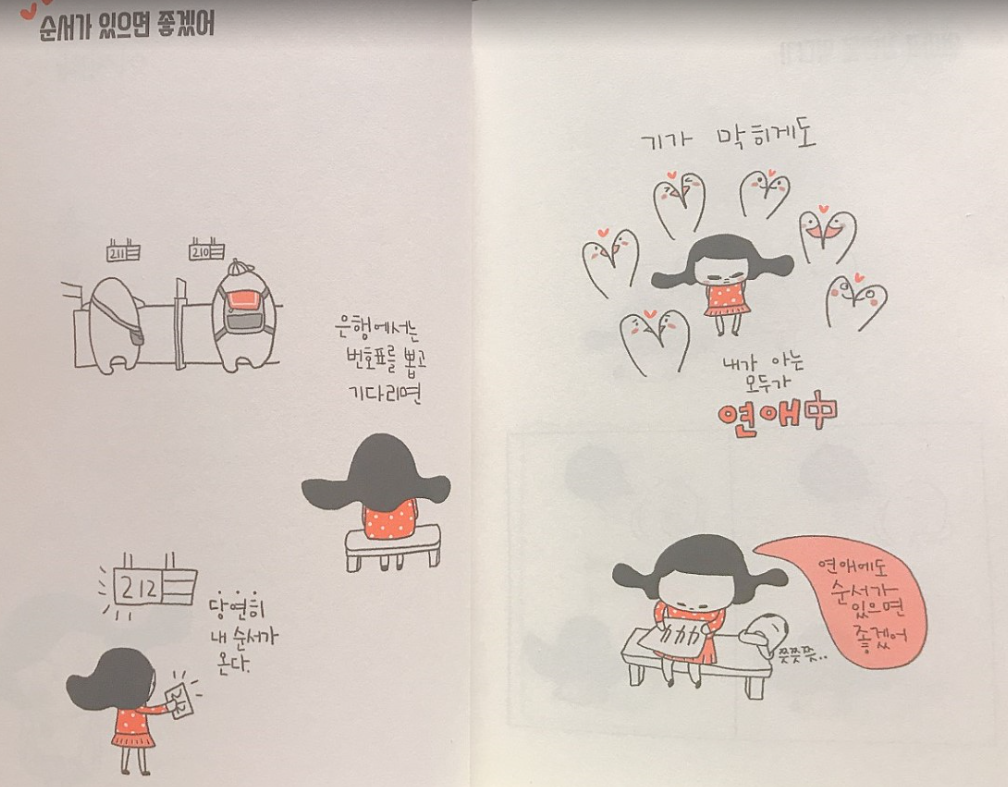 순서가 있으면 좋겠어
211
210
은행에서는
번호표를 뽑고
기다리면
212
당연히
내 순서가
온다.
212
기가 막히게도
내가 아는
모두가
연애中
연애에도
순서가
있으면
좋겠어
쯧쯧쯧..